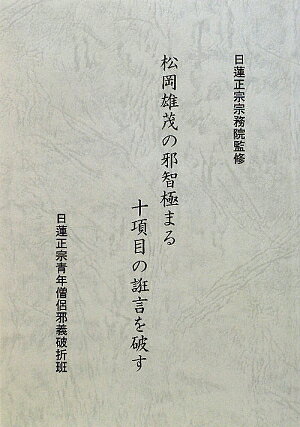 日蓮正宗宗務院監修
松岡雄茂の邪智極まる
十項目の誑言を破す
日蓮正宗青年僧侶邪義破折班